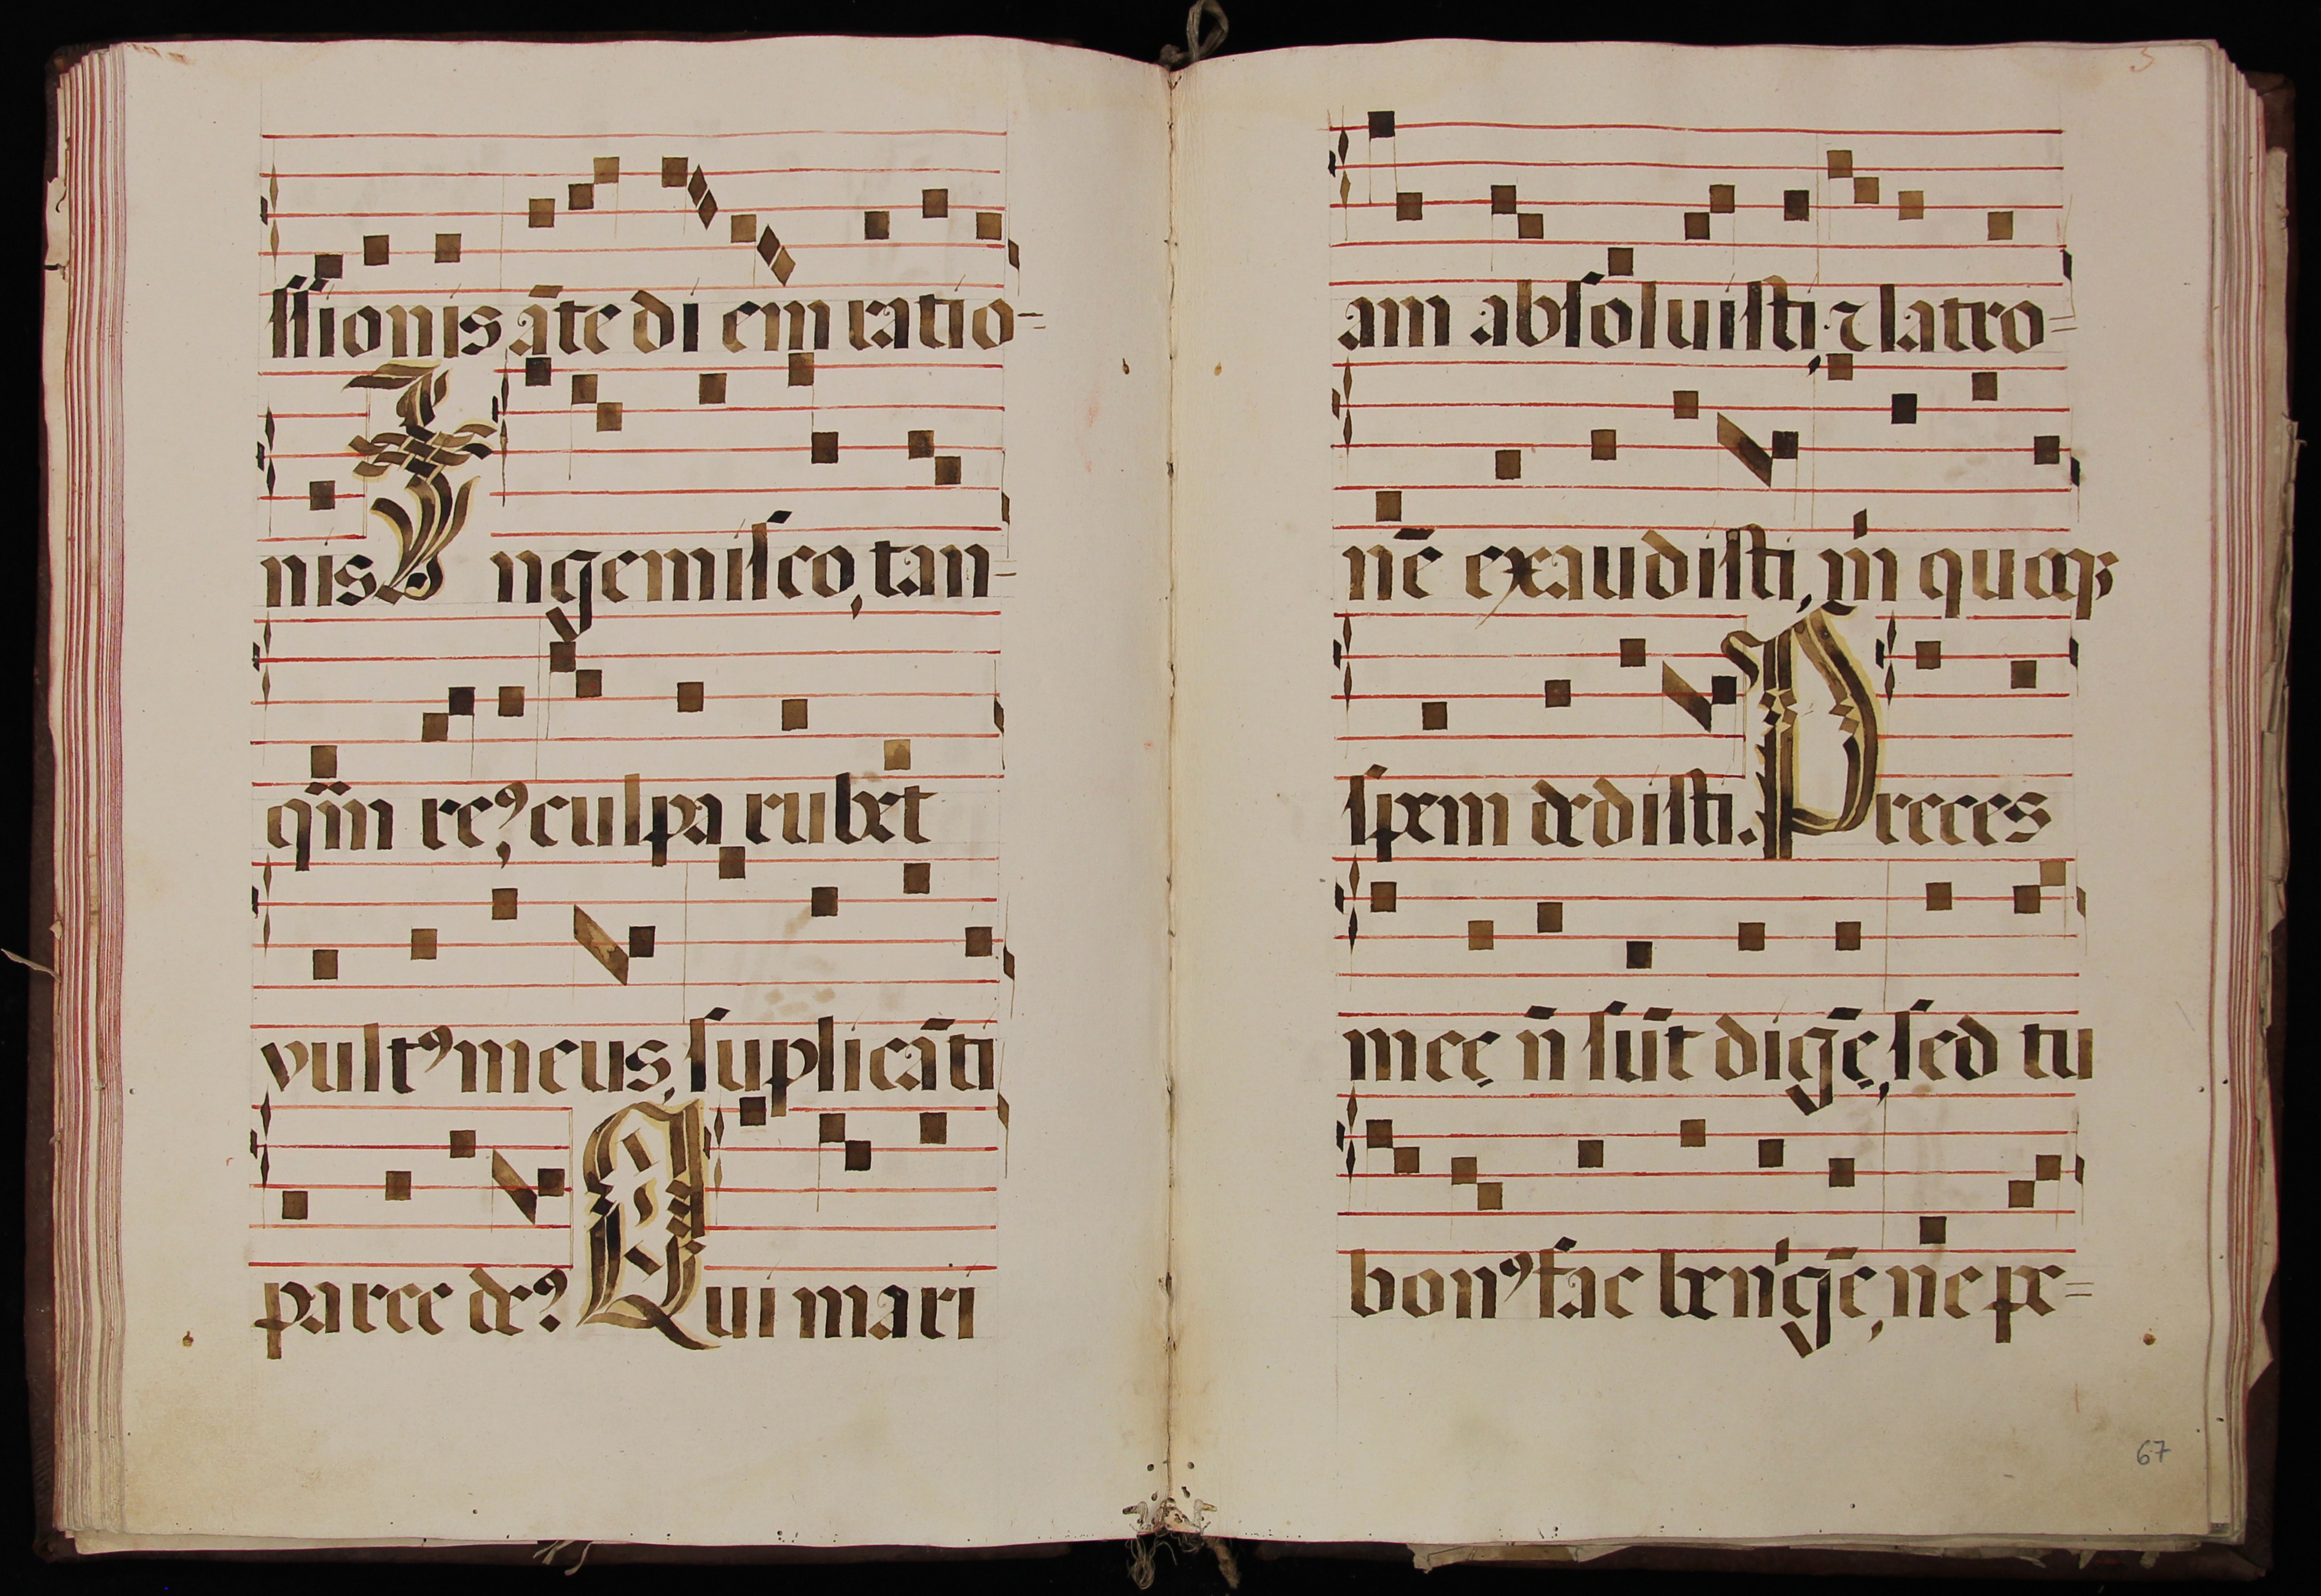 ſſionis āte di em ratio=
nis Ingemiſco, tan=
qm̃ reꝰ, culpa rubet
vultꝰ meus, ſuplicāti
parce deꝰ. Qui mari
am abſoluiſti, ⁊ latro=
nē exaudiſti, m̍ quoqꝫ
ſpem dediſti. Preces
meę ñ ſūt digē, ſed tu
bonꝰ fac ben̍gē, ne pe=
67